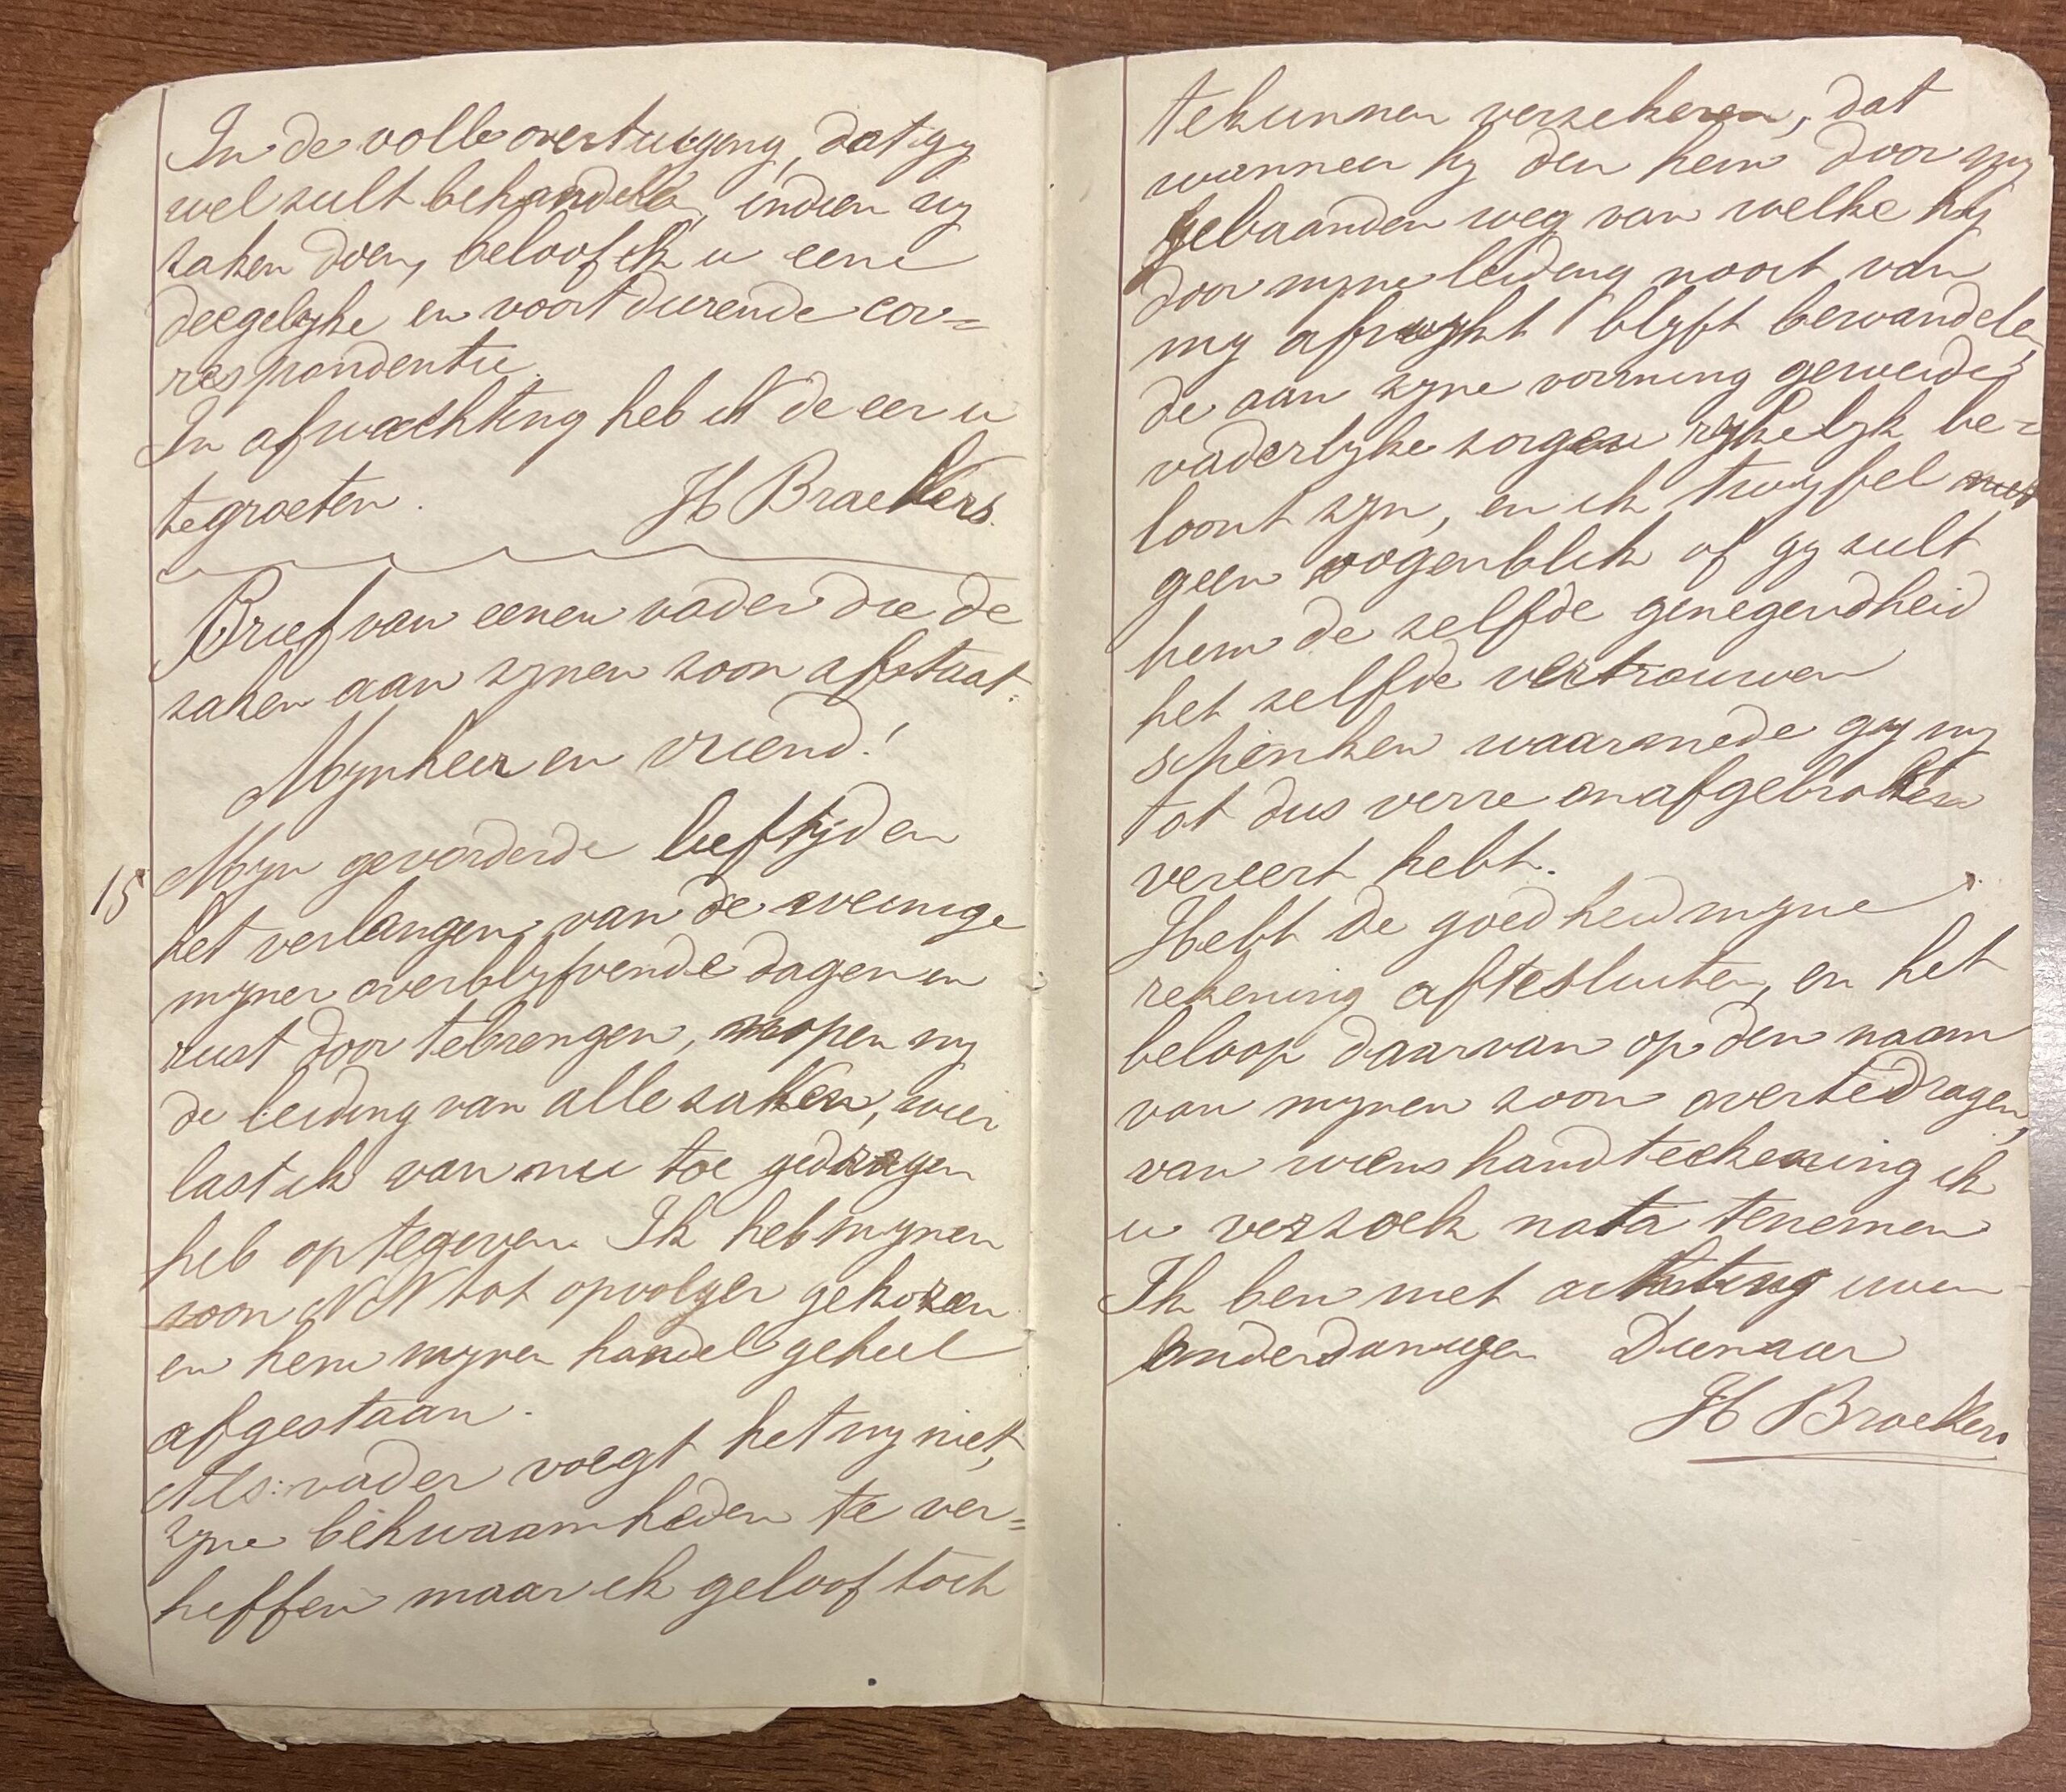 In de volle overtuiging, dat gy
wel sult behandele, indien wy
zaken doen, beloof ik u eene
deegelyke en voortdurende cor=
respondentie.
In afwachting heb ik de eer u
te groeten. H Braekers.
Brief van eenen vader die de
zaken aan zynen zoon afstaat.
Mynheer en vriend!
15 Myn gevorderde leeftyd en
het verlangen van de weinige
myner overblyfvende dagen in
rust door tebrengen, nopen my
de leiding van alle zaken, wier
last ik van nu toe gedragen
heb op tegeven. Ik heb mynen
zoon N N tot opvolger gekozen
en hem mynen handel geheel
afgestaan.
Als vader voegt het my niet,
zyne bekwaamheden te ver=
heffen maar ik geloof toch
tekunnen verzekeren, dat
wanneer hy den hem door my
gebaanden weg van welke hy
door myne leiding nooit van
my afwykt blyft bewandelen,
de aan zyne vorming geweide
vaderlyke zorgen rykelyk be=
loont zyn, en ik twyfel
geen oogenblik of gy sult
hem de zelfde genegendheid
het zelfde vertrouwen
schenken waarmede gy my
tot dus verre onafgebroken
vereert hebt.
Hebt de goedheid myne
rekening aftesluiten, en het
beloop daarvan op den naam
van mynen zoon overtedragen,
van wiens handteekening ik
u verzoek nota tenemen
Ik ben met achting uwen
onderdanigen Dienaar
H Braekers